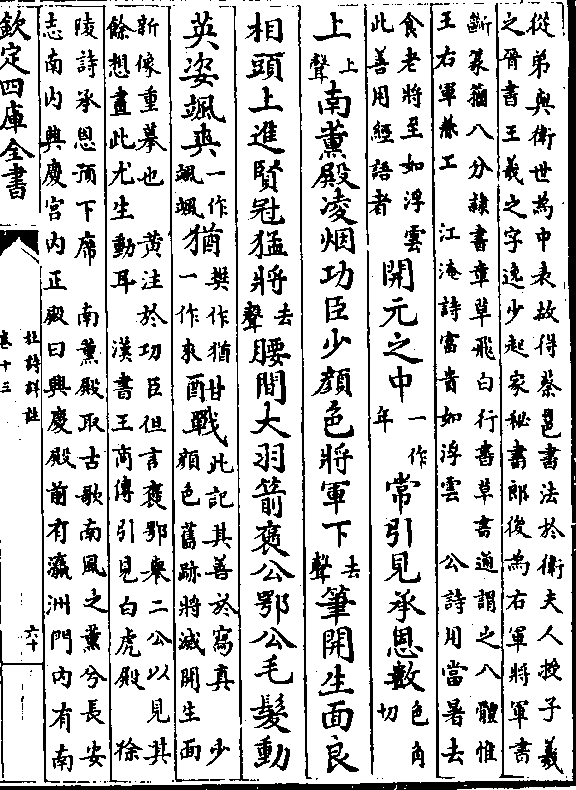 從弟與衛世為中表故得蔡邕書法於衛夫人授子羲
之晉書王羲之字逸少起家秘書郎後為右軍將軍書
斷篆籀八分隸書章草飛白行書草書通謂之八體惟
王右軍兼工　江淹詩富貴如浮雲　公詩用當暑去
食老將至如浮雲
此善用經語者
開元之中一作年常引見承恩數色角切
上上聲南薰殿凌烟功臣少顏色將軍下去聲筆開生面良
相頭上進賢冠猛將去聲腰間大羽箭褒公鄂公毛髮動
英姿颯爽一作颯颯猶樊作猶甘一作來酣戰此記其善於寫真　少
顏色舊跡將滅開生面
新像重摹也　黃注於功臣但言褒鄂舉二公以見其
餘想畫此尤生動耳　漢書王商傳引見白虎殿　徐
陵詩承恩預下席　南薰殿取古歌南風之薰兮長安
志南内興慶宮内正殿曰興慶殿前有瀛洲門内有南
欽定四庫全書
杜詩詳註
卷十三
六十